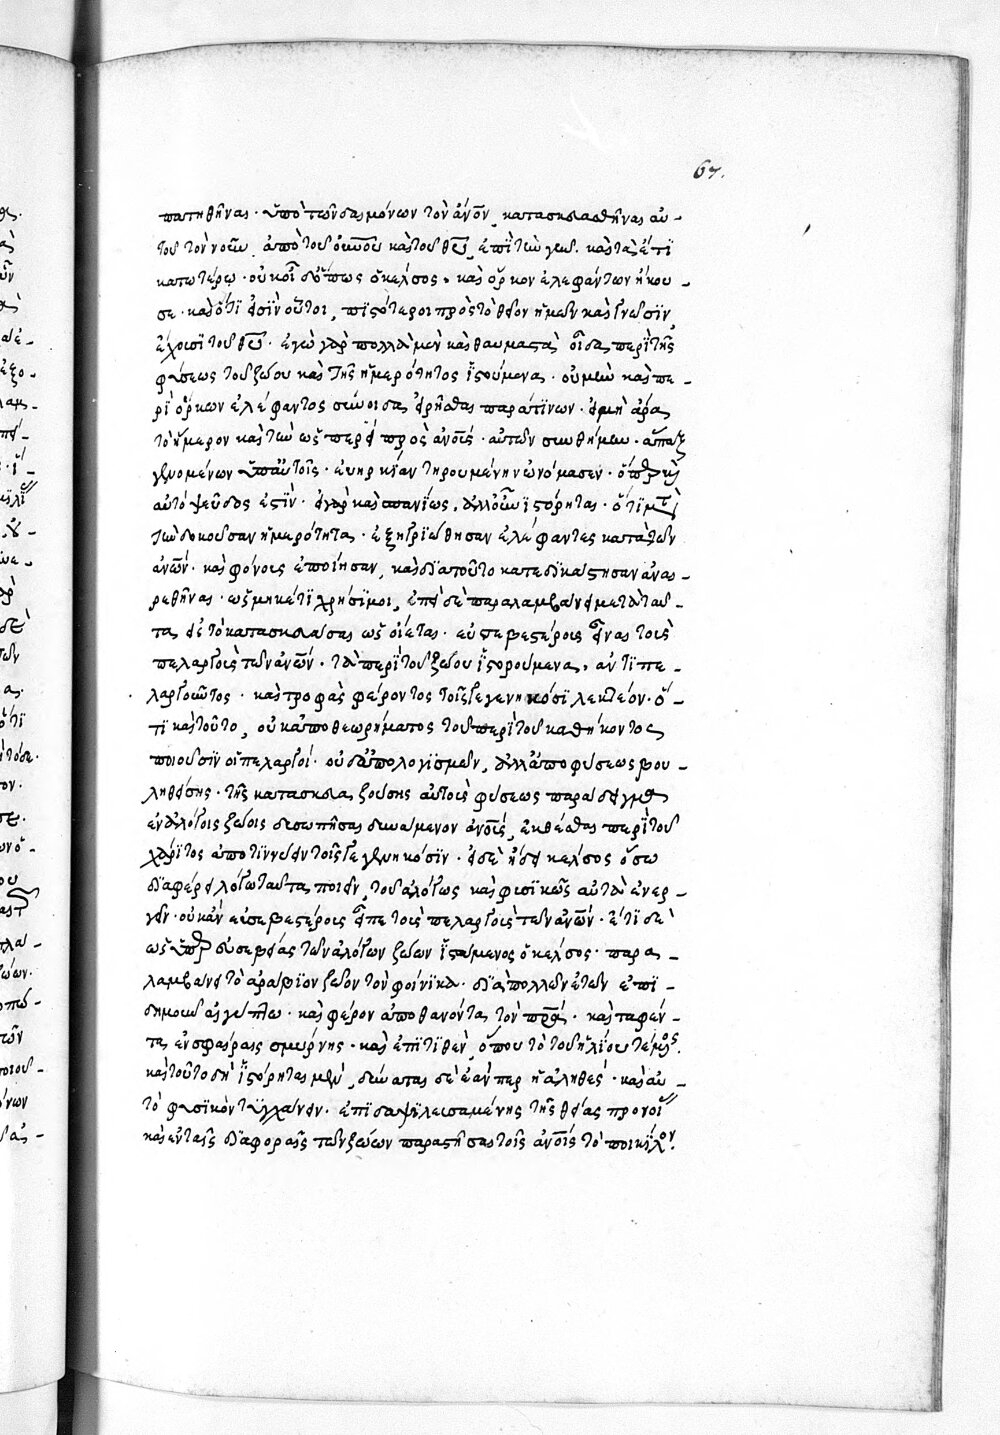 67.
πατηθῆναι· ὑπὸ τῶν δαιμόνων τὸν ἄνον, κατασπασθῆναι αὐ-
τοῦ τὸν νοῦν, ἀπὸ τοῦ οὐνοῦ καὶ τοῦ θῦ, ἐπὶ τὴν γῆν. καὶ τὰ ἔτι
κατωτέρω· οὐκ οἶδ' ὅπως ὁ κέλσος· καὶ ὅρκον ἐλεφάντων ἤκου-
σε· καὶ ὅτι εἰσὶν οὗτοι, πιστότεροι πρὸς τὸ θεῖον ἡμῶν καὶ γνῶσιν
ἔχουσι τοῦ θῦ. ἐγὼ γὰρ πολλὰ μὲν καὶ θαυμαστὰ οἶδα περὶ τῆς
φύσεως τοῦ ζώου καὶ τῆς ἡμερότητος ἱστούμενα· οὐ μὴν καὶ πε-
ρὶ ὅρκων ἐλέφαντος σύνοιδα εἰρῆσθαι παρά τινων· εἰ μὴ ἄρα
τὸ ἥμερον καὶ τὴν ὡσπερεὶ πρὸς ἀνους· αὐτῶν συνθήκην· ἅπαξ
γενομένων ὑπ' αὐτοῖς· εὐηρκίαν τηρουμένην ὠνόμασεν· ὅπερ καὶ
αὐτὸ ψεῦδος ἐστίν· εἰ γὰρ καὶ σπανίως, ἀλλ' οὖν ἱστόρηται· ὅτι μετὰ
τὴν δοκοῦσαν ἡμερότητα· ἐξηγριώθησαν ἐλέφαντες κατὰ τῶν
ἀνων· καὶ φόνους ἐποίησαν, καὶ διὰ τοῦτο κατεδικάσθησαν ἀναι-
ρεθῆναι· ὡς μηκέτι χρήσιμοι, ἐπεὶ δὲ παραλαμβάνει μετὰ ταῦ-
τα εἰς τὸ κατασκευάσαι ὡς οἴεται· εὐσεβεστέρους εἶναι τοὺς
πελαργοὺς τῶν ἀνων· τὰ περὶ τοῦ ζώου ἱστορούμενα, ἀντιπε-
λαργοῦντος· καὶ τροφὰς φέροντος τοῖς γεγενηκόσι λεκτέον· ὅ-
τι καὶ τοῦτο, οὐκ ἀπὸ θεωρήματος τοῦ περὶ τοῦ καθήκοντος
ποιοῦσιν οἱ πελαργοί· οὐδ' ἀπὸ λογισμῶν, ἀλλ' ἀπὸ φύσεως βου-
ληθείσης· τῆς κατασκευαζούσης αὐτοὺς φύσεως παράδειγμα
ἐν ἀλόγοις ζώοις δυσωπῆσαι δυνάμενον ἀνους, ἐκθέσθαι περὶ τοῦ
χάριτος ἀποτιννύειν τοῖς γεγεννηκόσιν· εἰ δὲ ᾔδει κέλσος ὅσῳ
διαφέρει λόγῳ ταῦτα ποιεῖν, τοῦ ἀλόγως καὶ φυσικῶς αὐτὰ ἐνερ-
γεῖν· οὐκ ἂν εὐσεβεστέρους εἶπε τοὺς πελαργοὺς τῶν ἀνων· ἔτι δὲ
ὡς ὑπὲρ εὐσεβείας τῶν ἀλόγων ζώων ἱστάμενος ὁ κέλσος· παρα-
λαμβάνει τὸ ἀράβιον ζῶον τὸν φοίνικα· διὰ πολλῶν ἐτῶν ἐπι-
δημοῦν αἰγύπτῳ· καὶ φέρον ἀποθανόντα τὸν πρα· καὶ ταφέν-
τα ἐν σφαίρᾳ σμύρνης· καὶ ἐπιτιθέν, ὅπου τὸ τοῦ ἡλίου τέμενος.
καὶ τοῦτο δὴ ἱστόρηται μέν, δύναται δὲ ἐάνπερ ᾖ ἀληθές· καὶ αὐ-
τὸ φυσικὸν τυγχάνειν. ἐπιδαψιλευσαμένης τῆς θείας προνοί
καὶ ἐν ταῖς διαφοραῖς τῶν ζώων παραστῆσαι τοῖς ἀνοις τὸ ποικίλον